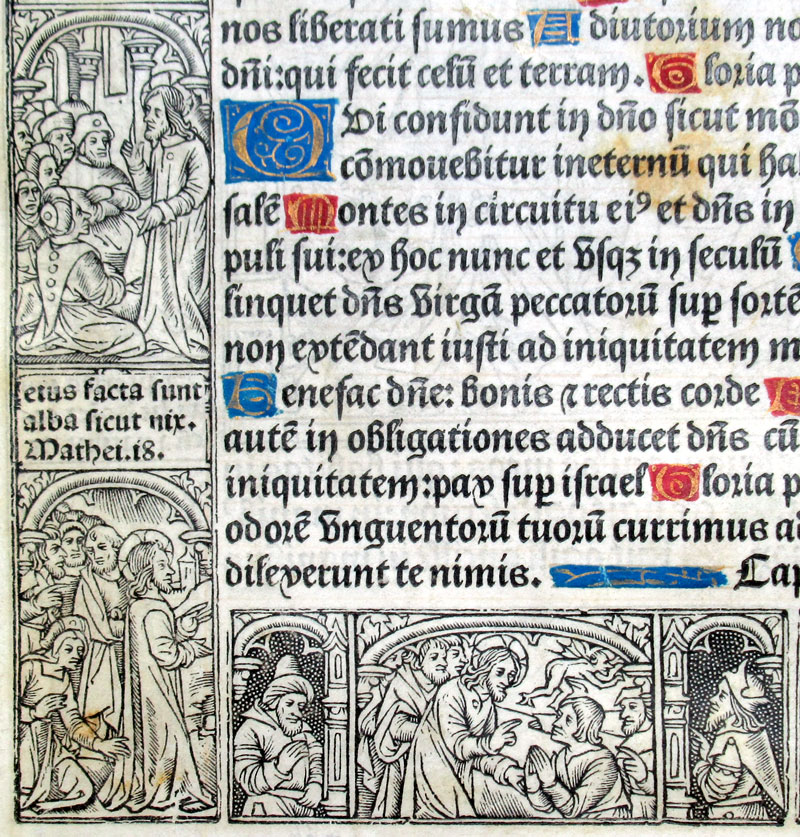 nos liberati sumus A diutoriuɱ no
dñi:qui fecit celũ et terraɱ. G loria p
Q Vi confidunt in dño sicut mõ
cõmouebitur ineternũ qui ha
salẽ M ontes in circuitu eiꝰ et dñs in
puli sui:ex hoc nunc et vsqꝫ in seculũ
linquet dñs virgã peccatorũ suꝑ sortẽ
non extẽdant iusti ad iniquitatem m
B enefac dñe: bonis ⁊ rectis corde
autẽ in obligationes adducet dñs cũ
iniquitatem:pax suꝑ israel G loria p
odorẽ vnguentorũ tuorũ currimus ad
dilexerunt te nimis. Cap
eius facta sunt
alba sicut nix.
Mathei.18.